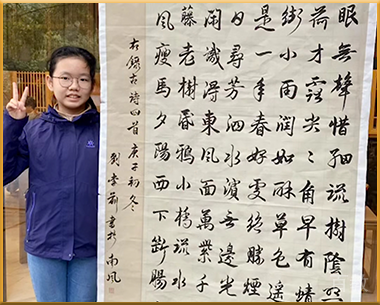 眼無聲惜細流樹陰照
荷才露尖〻角早有蜻
街小雨潤如酥草色遙
是一年春好處絕勝煙
日尋芳泗水濱无邊光
閒識得東風面萬紫千
藤老樹昏鴉小橋流水
風瘦馬夕陽西下斷腸
右錄古詩四首庚子初冬
劉 書於南風